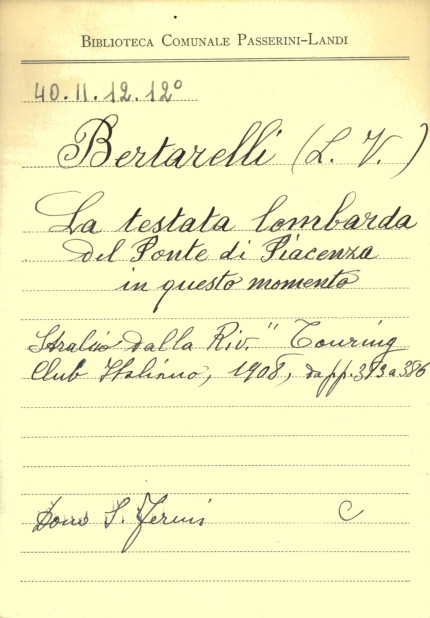 BIBLIOTECA COMUNALE PASSERINI-LANDI
40.II.12.12°
Bertarelli (L. V.)
La testata lombarda
del Ponte di Piacenza
in questo momento
Stralcio dalla Riv. "Touring
Club Italiano, 1908, da pp. 383 a 386
Dono S. Fermi
C